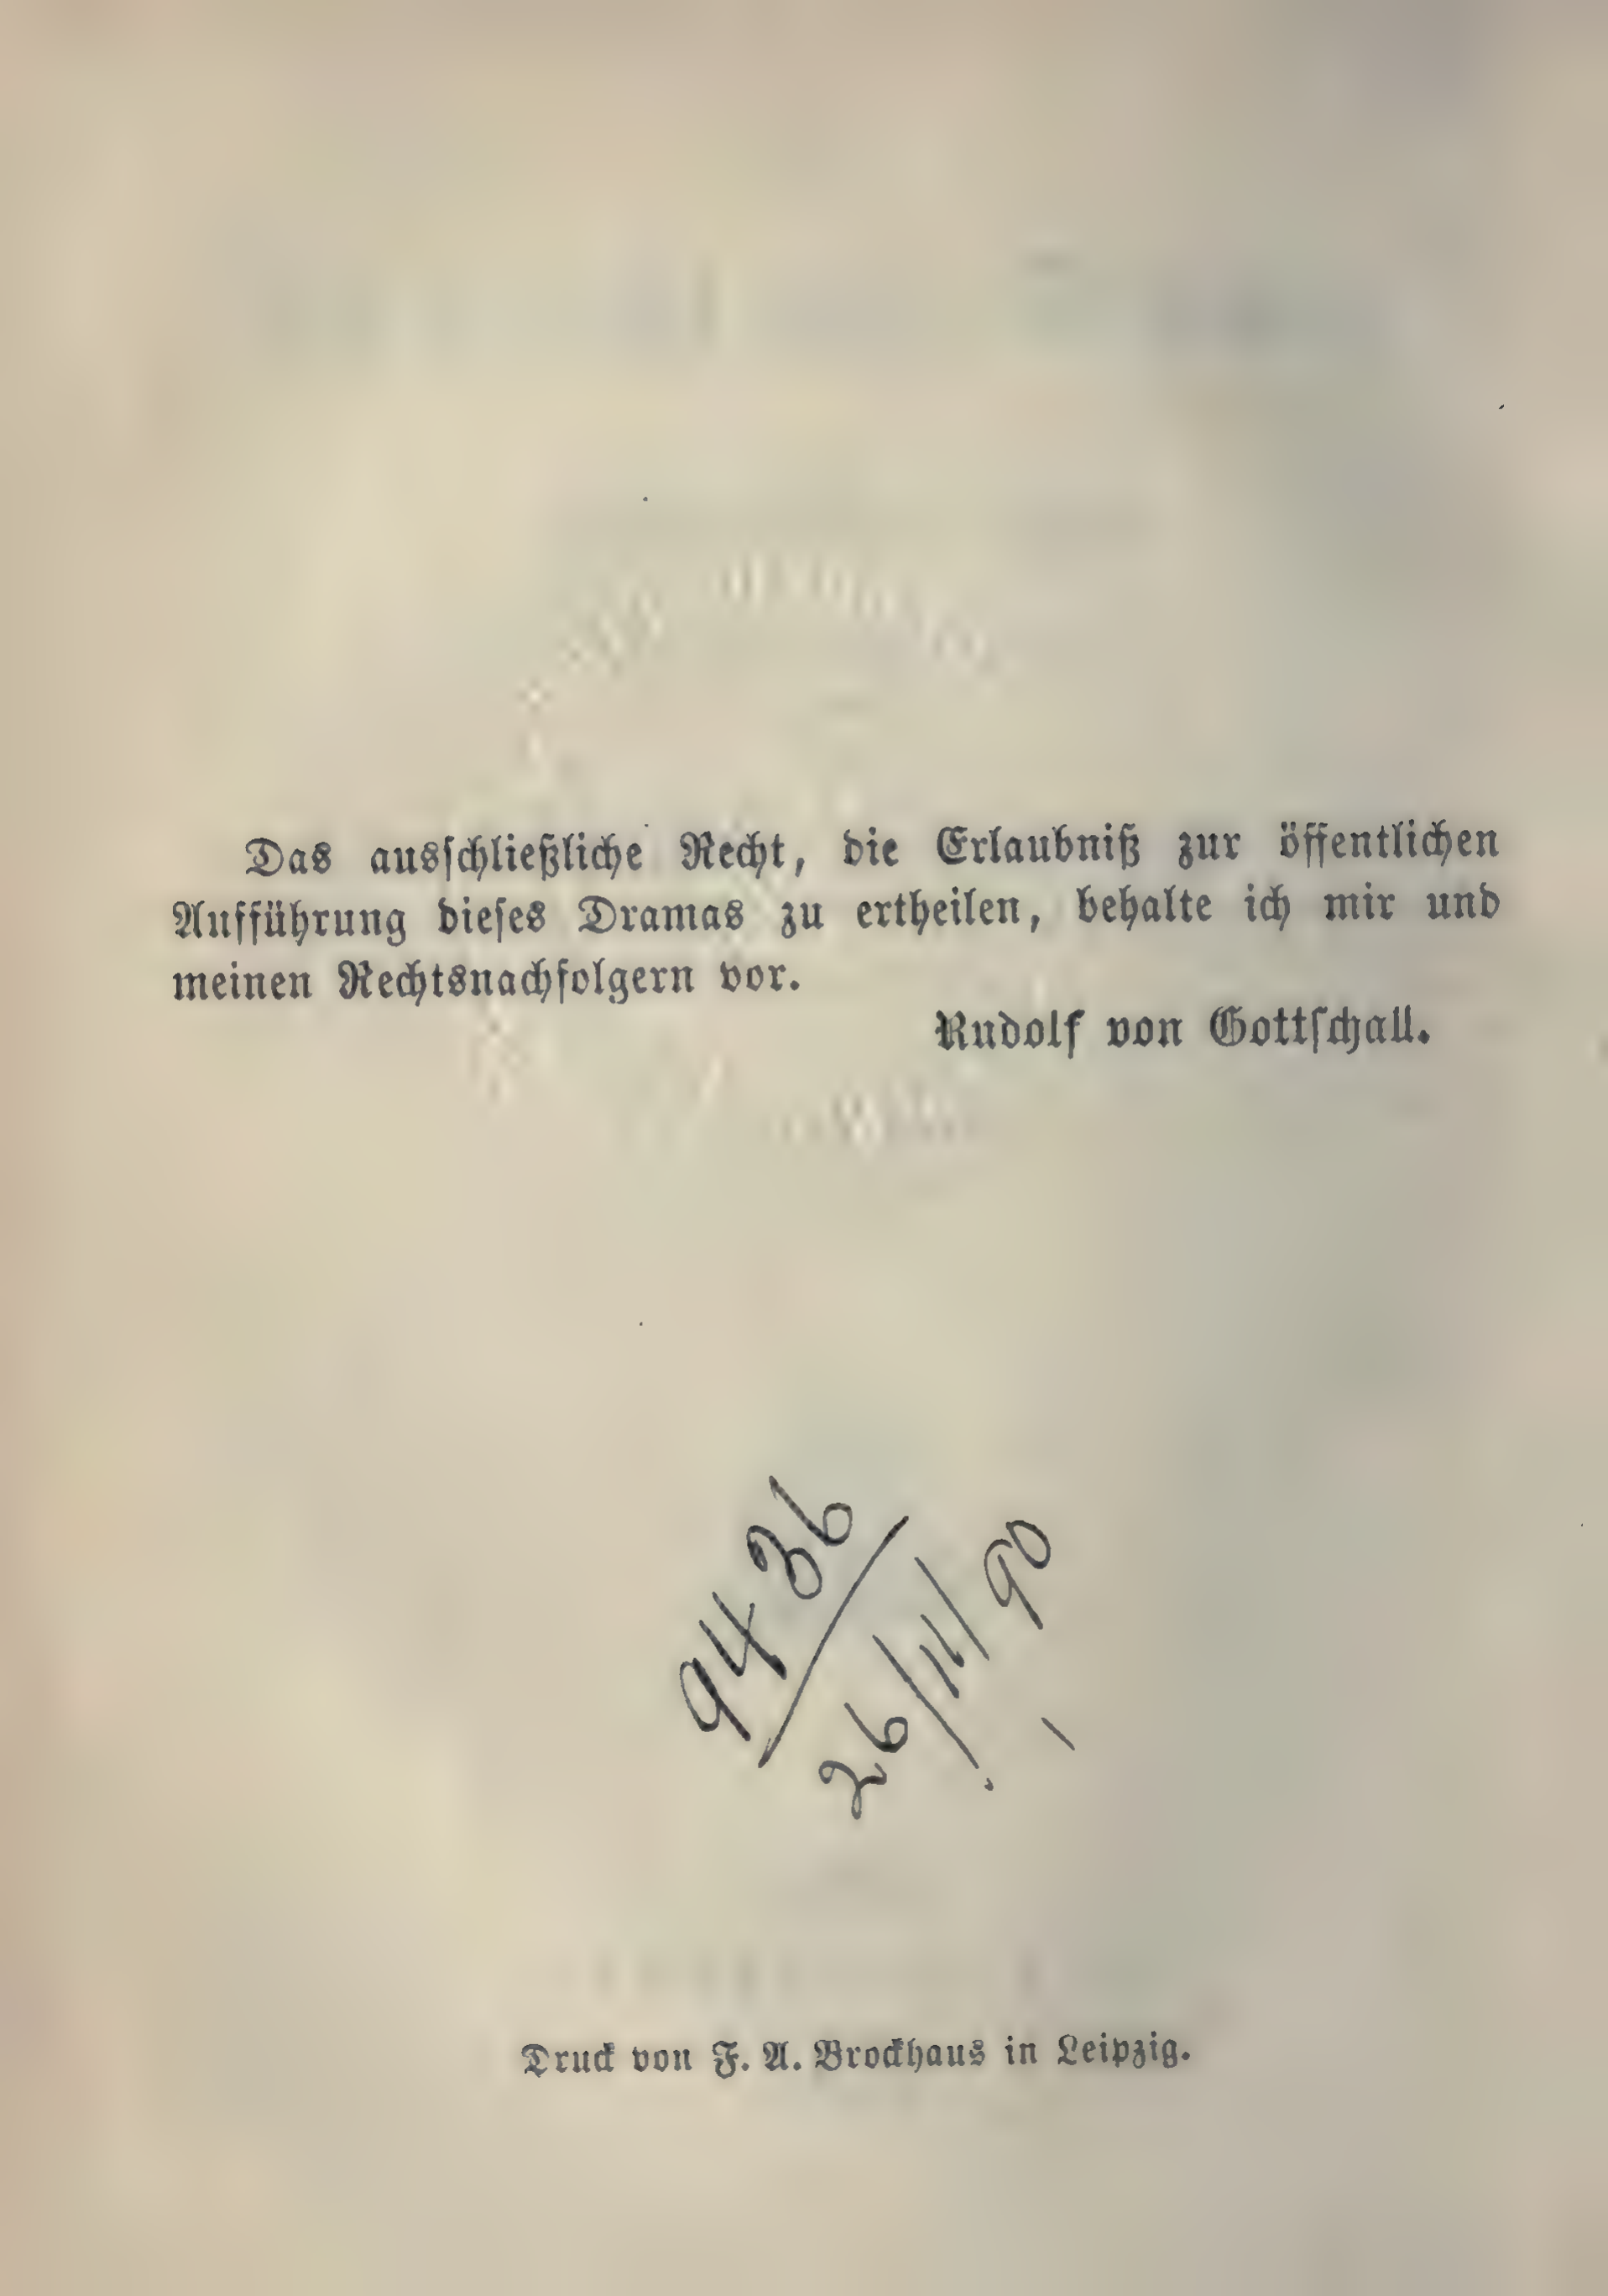 Das ausſchließliche Recht, die Erlaubniß zur öffentlichen
Aufführung dieſes Dramas zu ertheilen, behalte ich mir und
meinen Rechtsnachfolgern vor.
Rudolf von Gottſchall.
9436
26/11/90
Druck von F. A. Brockhaus in Leipzig.